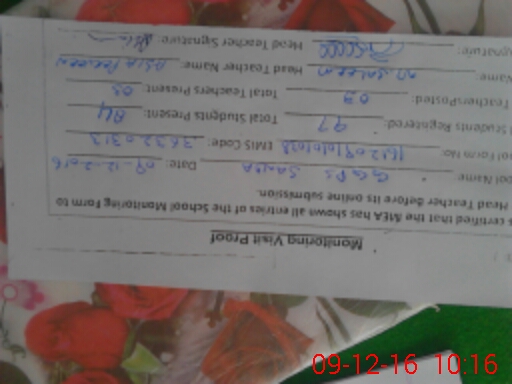 Monitoring Visit Proof
s certified that the MEA has shown all entries of the School Monitoring Form to
Head Teacher before its online submission.
ool Name: GGPS Date: 09-12-2016
ool Form No: EMIS Code: 36320313
Students Registered: 97 Total Students Present: 84
Teachers Posted: 03 Total Teachers Present: 03
Name: Head Teacher Name: ASIA PARVEEN
ignature: Head Teacher Signature:
09-12-16 10:16